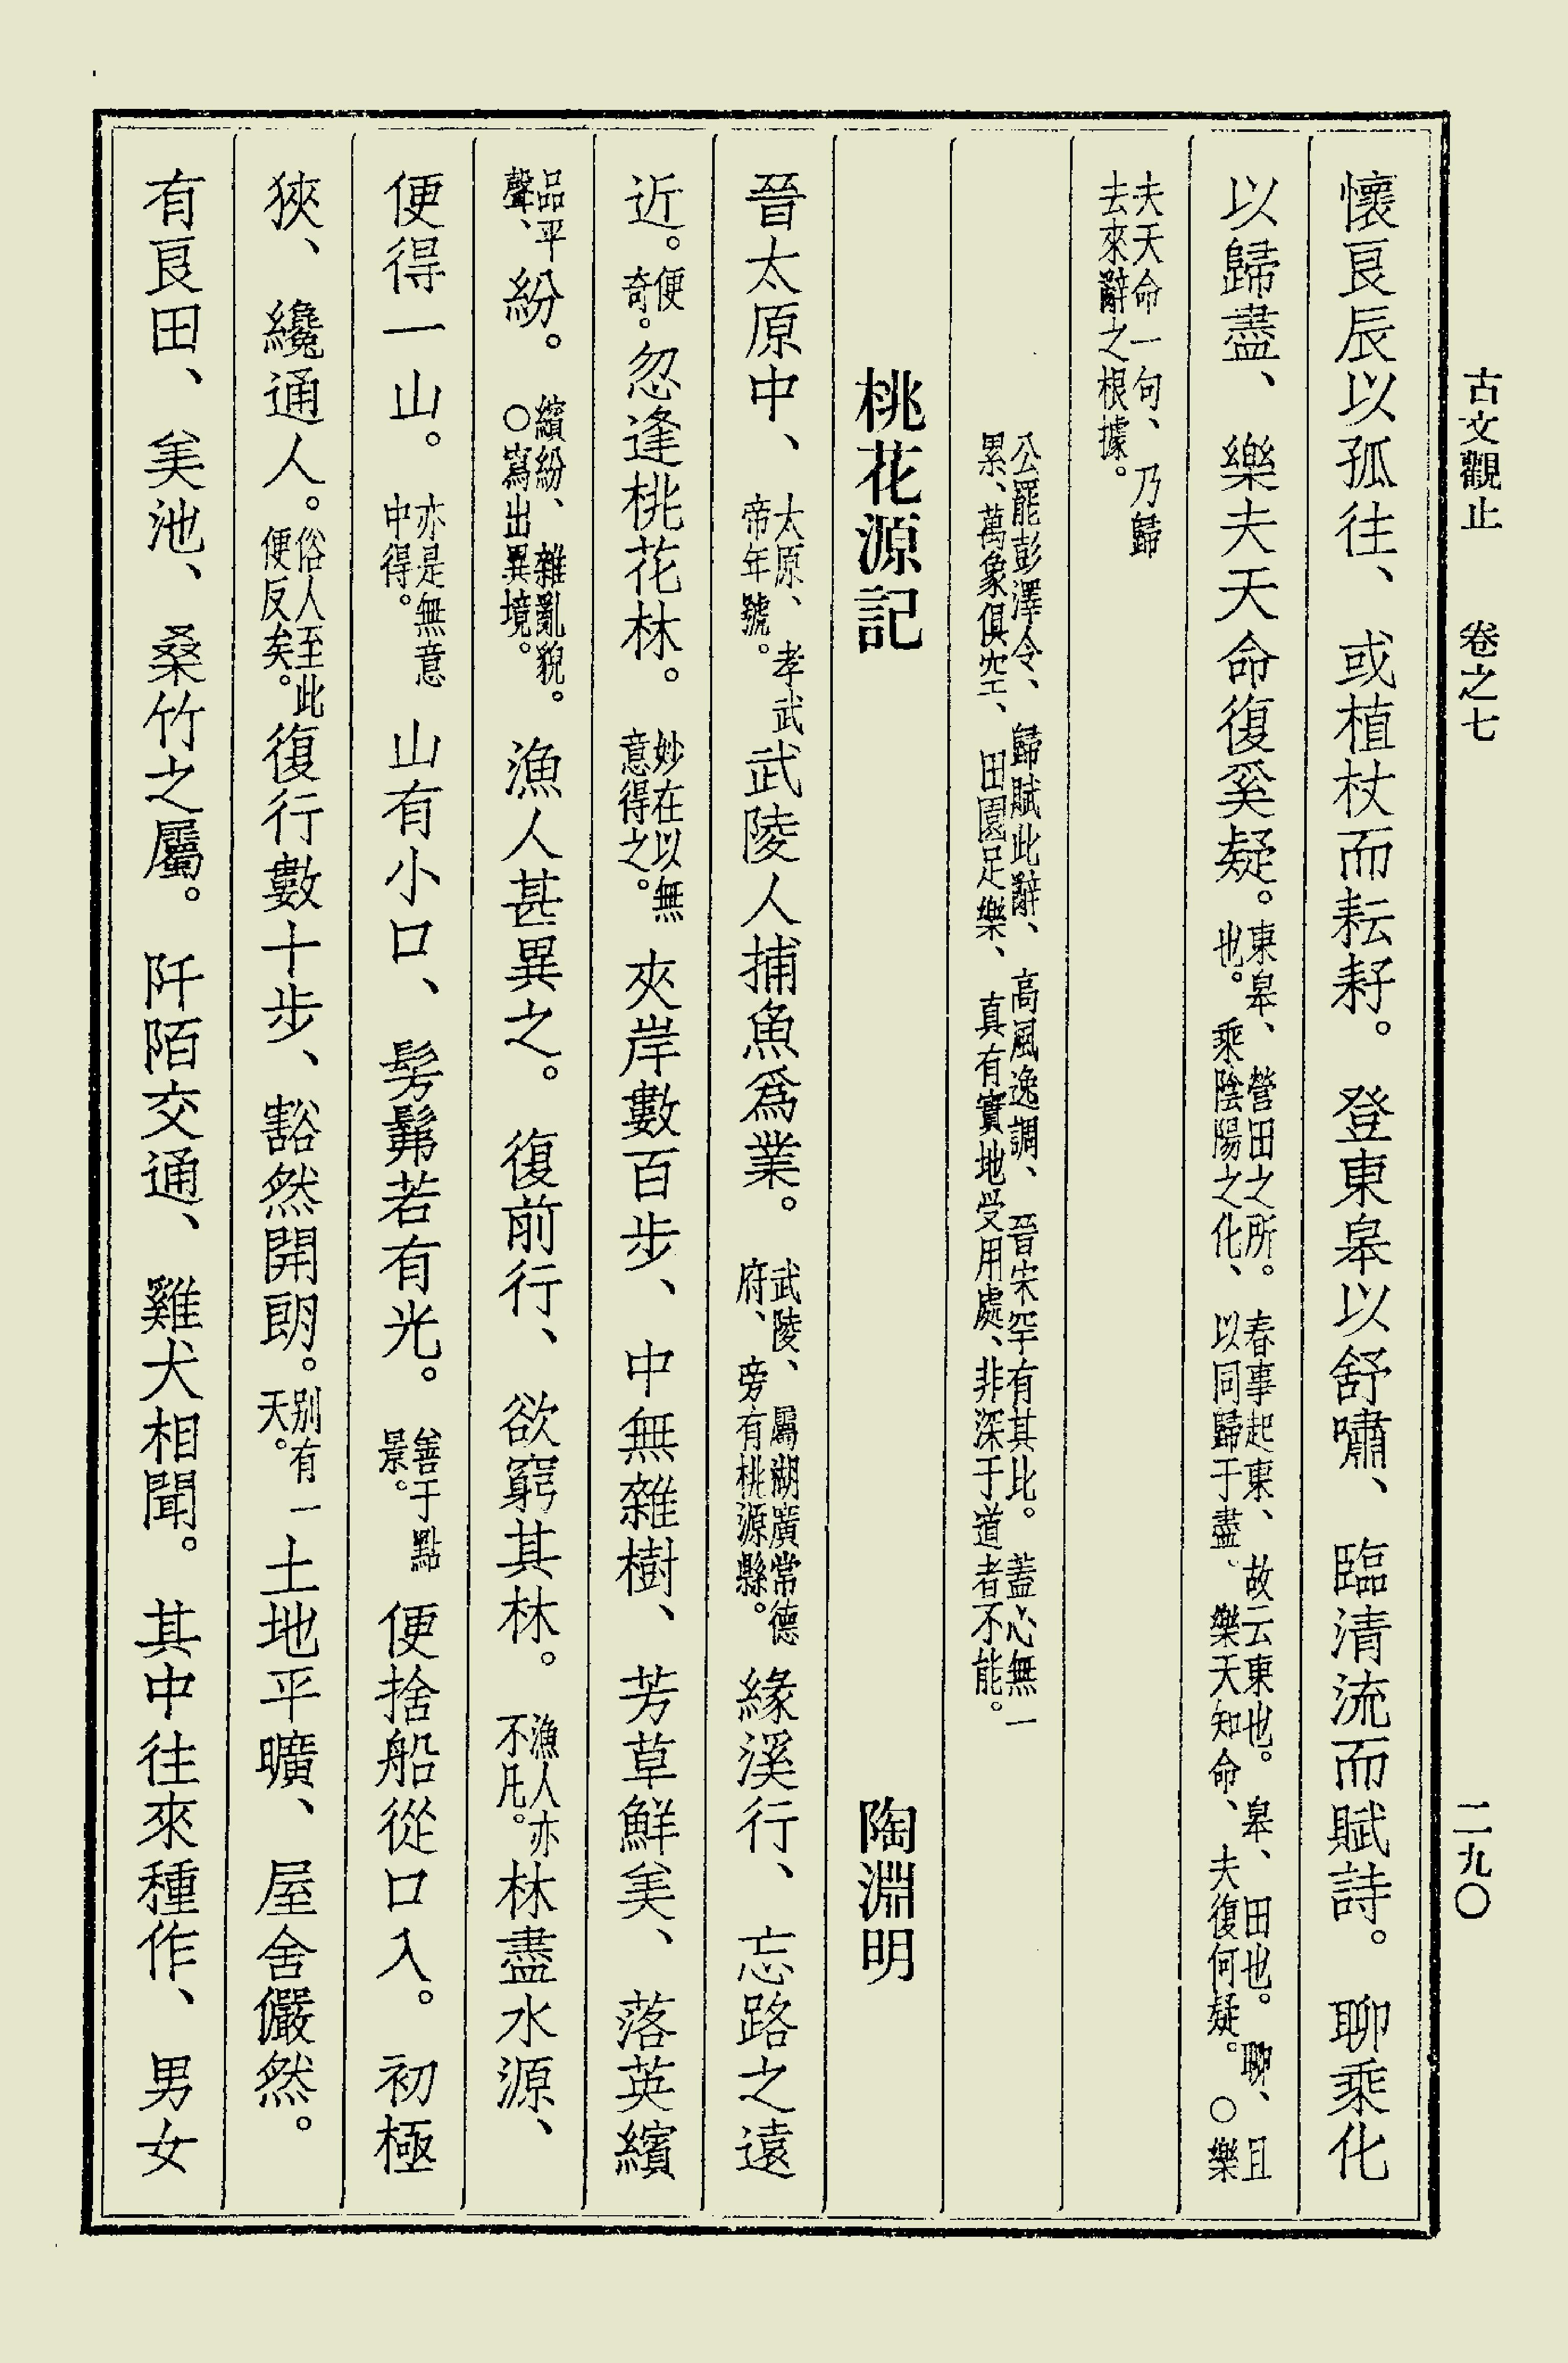 古文觀止　卷之七　二九〇
懷良辰以孤往、或植杖而耘耔。登東皋以舒嘯、臨清流而賦詩。聊乘化
以歸盡、樂夫天命復奚疑。東皋、營田之所。春事起東、故云東也。皋、田也。聊、且也。乘陰陽之化、以同歸于盡。樂天知命、夫復何疑。〇樂
夫天命一句、乃歸去來辭之根據。
公罷彭澤令、歸賦此辭、高風逸調、晉宋罕有其比。蓋心無一
累、萬象俱空、田園足樂、真有實地受用處、非深于道者不能。
桃花源記　陶淵明
晉太原中、太原、孝武帝年號。武陵人捕魚爲業。武陵、屬湖廣常德府、旁有桃源縣。緣溪行、忘路之遠
近。便奇。忽逢桃花林。妙在以無意得之。夾岸數百步、中無雜樹、芳草鮮美、落英繽
品平聲、紛。繽紛、雜亂貌。〇寫出異境。漁人甚異之。復前行、欲窮其林。漁人亦不凡。林盡水源、
便得一山。亦是無意中得。山有小口、髣髴若有光。善于點景。便捨船從口入。初極
狹、纔通人。俗人至此便反矣。復行數十步、豁然開朗。別有一天。土地平曠、屋舍儼然。
有良田、美池、桑竹之屬。阡陌交通、雞犬相聞。其中往來種作、男女